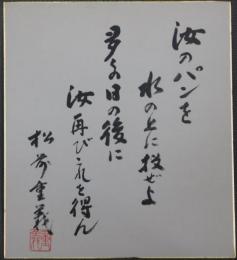 汝のパンを
水の上に投ぜよ
多くの日の後に
汝再び之を得ん
松前重義